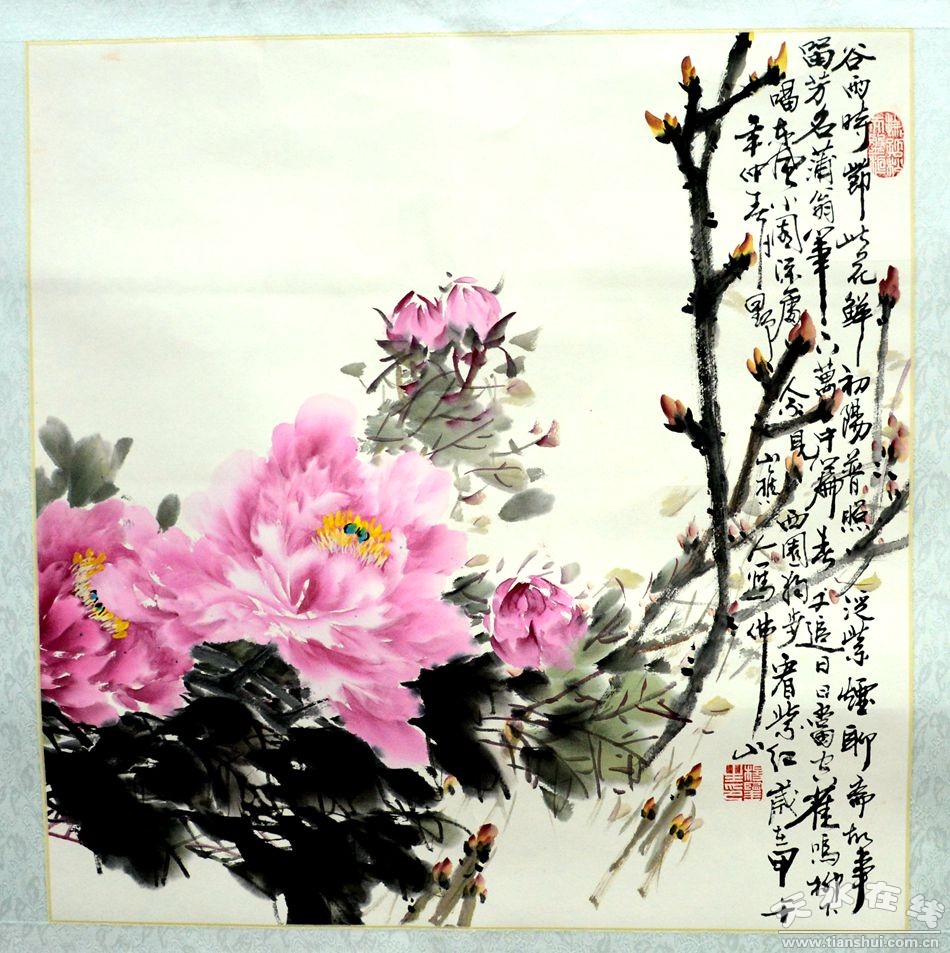 谷雨時節此花鮮初陽普照泛紫煙聊齋故事
留芳名蒲翁筆下萬千篇春子追日日當空雀鳴柳下
唱東風小園深處人不見西園獨步看紫紅歲在甲午
年仲春月野山雅人寫佛山
天水在线
www.tianshui.com.cn